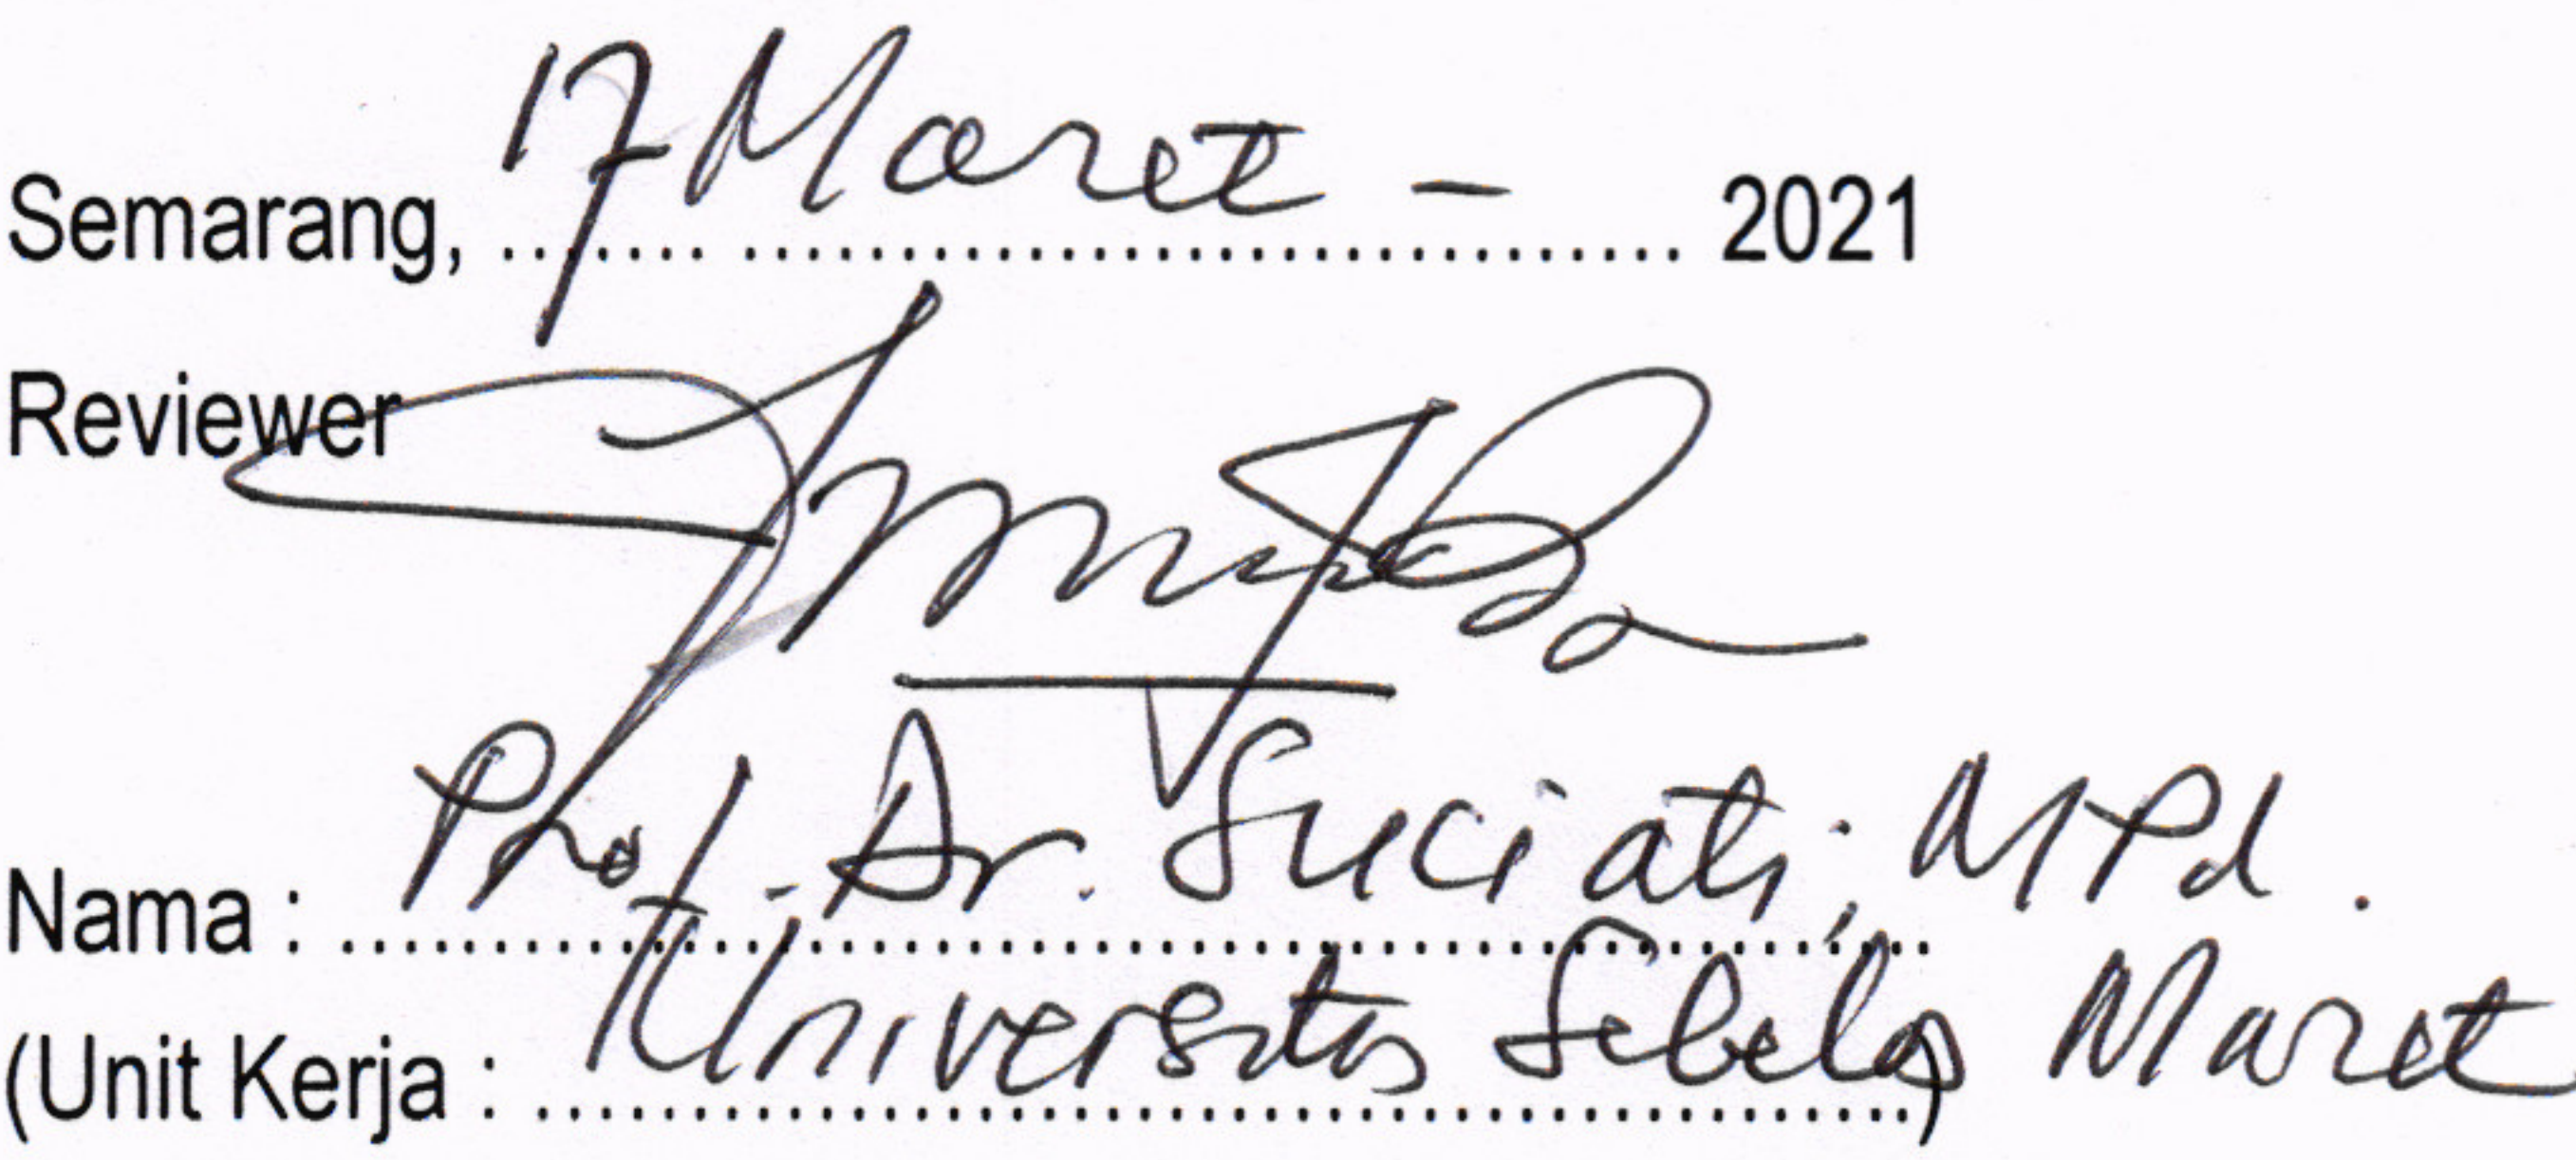 Semarang, 17 Maret - 2021
Reviewer
Nama : Prof. Dr. Suciati, MPd.
(Unit Kerja : Universitas Sebelas Maret)